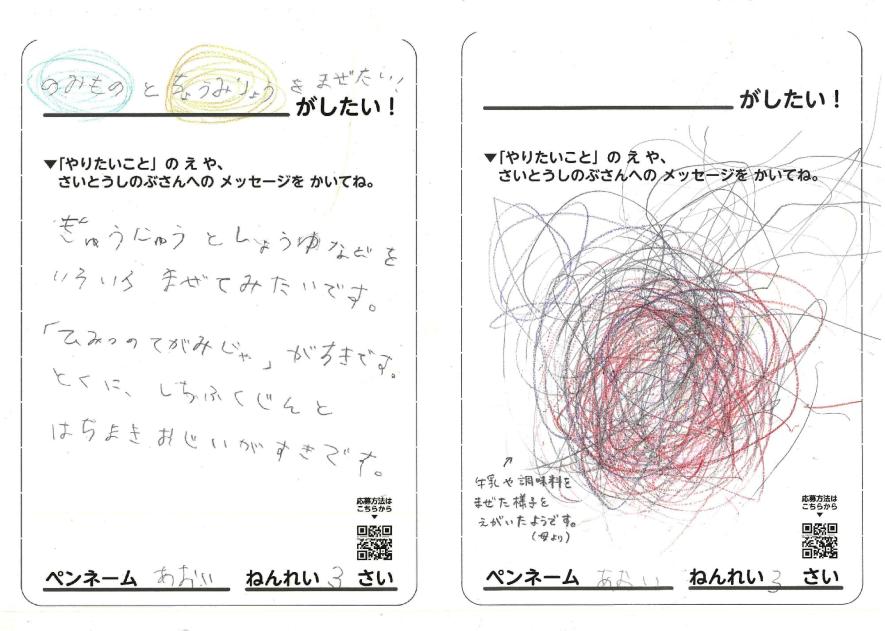 のみもの と ちょうみりょう を まぜたい！
がしたい！
▼「やりたいこと」の え や、
さいとうしのぶさんへの メッセージを かいてね。
ぎゅうにゅう と しょうゆ などを
いろいろ まぜてみたいです。
「ひみつのてがみじゃ」がすきです。
とくに、しちふくじんと
はちまきおじいがすきです。
応募方法は
こちらから
▼
ペンネーム あおい ねんれい 3 さい
がしたい！
▼「やりたいこと」の え や、
さいとうしのぶさんへの メッセージを かいてね。
↗
牛乳や調味料を
まぜた様子を
えがいたようです。
(母より)
応募方法は
こちらから
▼
ペンネーム あおい ねんれい 3 さい